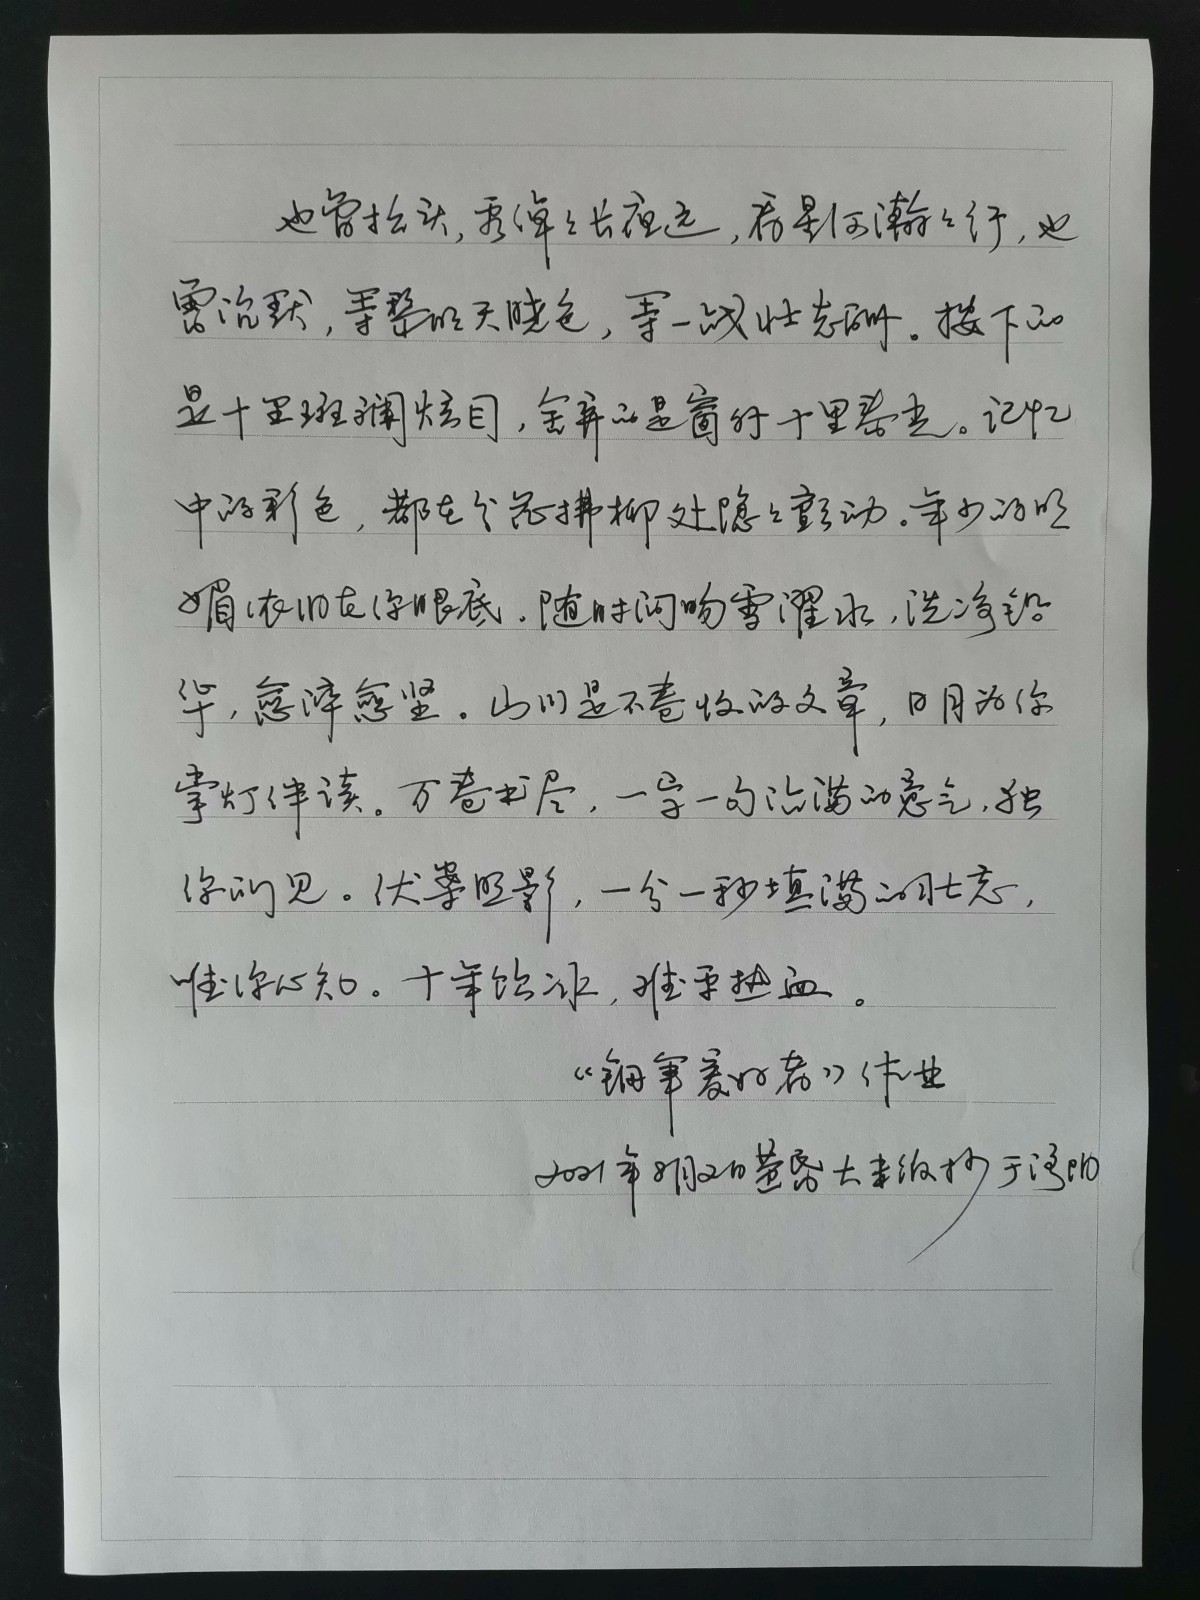 也曾抬头，看倬倬长夜远，看星河瀚瀚行，也
曾沉默，等黎明天晓色，等一战壮志酬。按下的
是十里斑斓炫目，舍弃的是窗外十里春光。记忆
中的彩色，都在分花拂柳处隐隐颤动。年少的明
媚依旧在你眼底，随时间吻雪濯冰，洗净铅
华，愈淬愈坚。山川是不卷收的文章，日月为你
掌灯伴读。万卷书尽，一字一句沾满的意气，独
你所见。伏案照影，一分一秒填满的壮志，
唯你心知。十年饮冰，难平热血。
“钢笔爱好者”作业
2021年8月2日黄昏大来收抄于